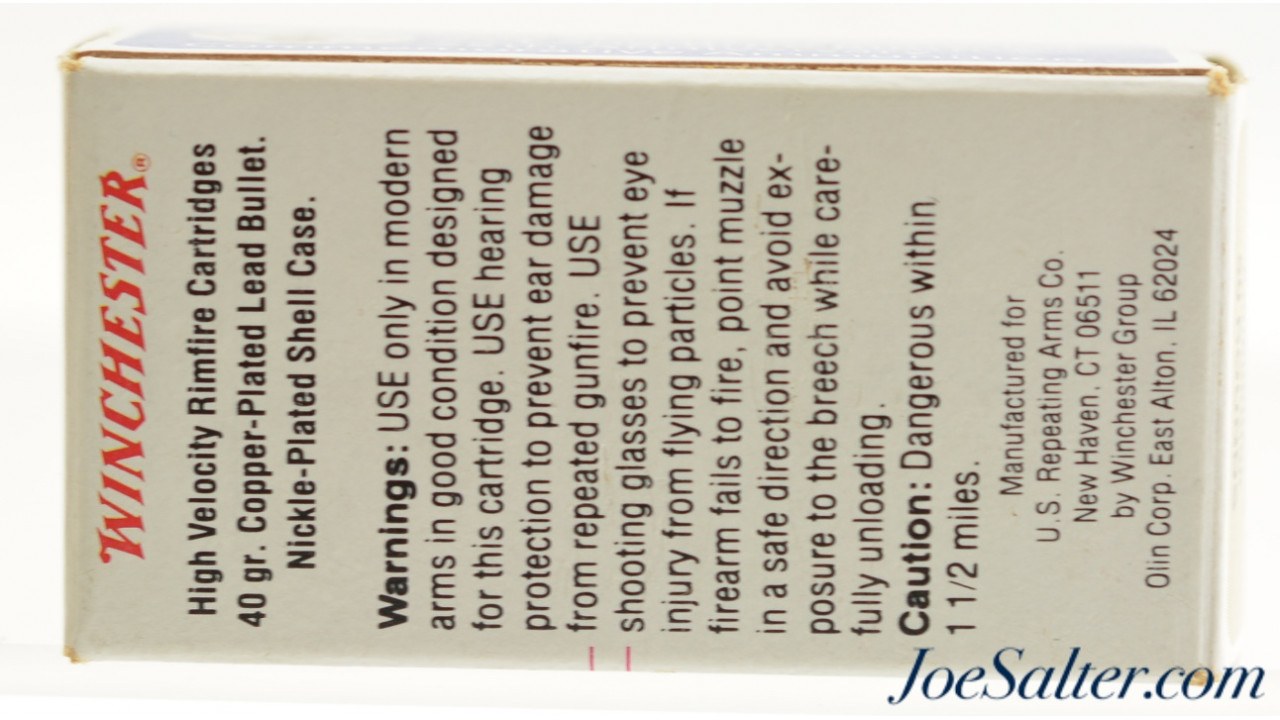 WINCHESTER®
High Velocity Rimfire Cartridges
40 gr. Copper-Plated Lead Bullet.
Nickle-Plated Shell Case.
Warnings: USE only in modern
arms in good condition designed
for this cartridge. USE hearing
protection to prevent ear damage
from repeated gunfire. USE
shooting glasses to prevent eye
injury from flying particles. If
firearm fails to fire, point muzzle
in a safe direction and avoid ex-
posure to the breech while care-
fully unloading.
Caution: Dangerous within
1 1/2 miles.
Manufactured for
U.S. Repeating Arms Co.
New Haven, CT 06511
by Winchester Group
Olin Corp. East Alton, IL 62024
JoeSalter.com